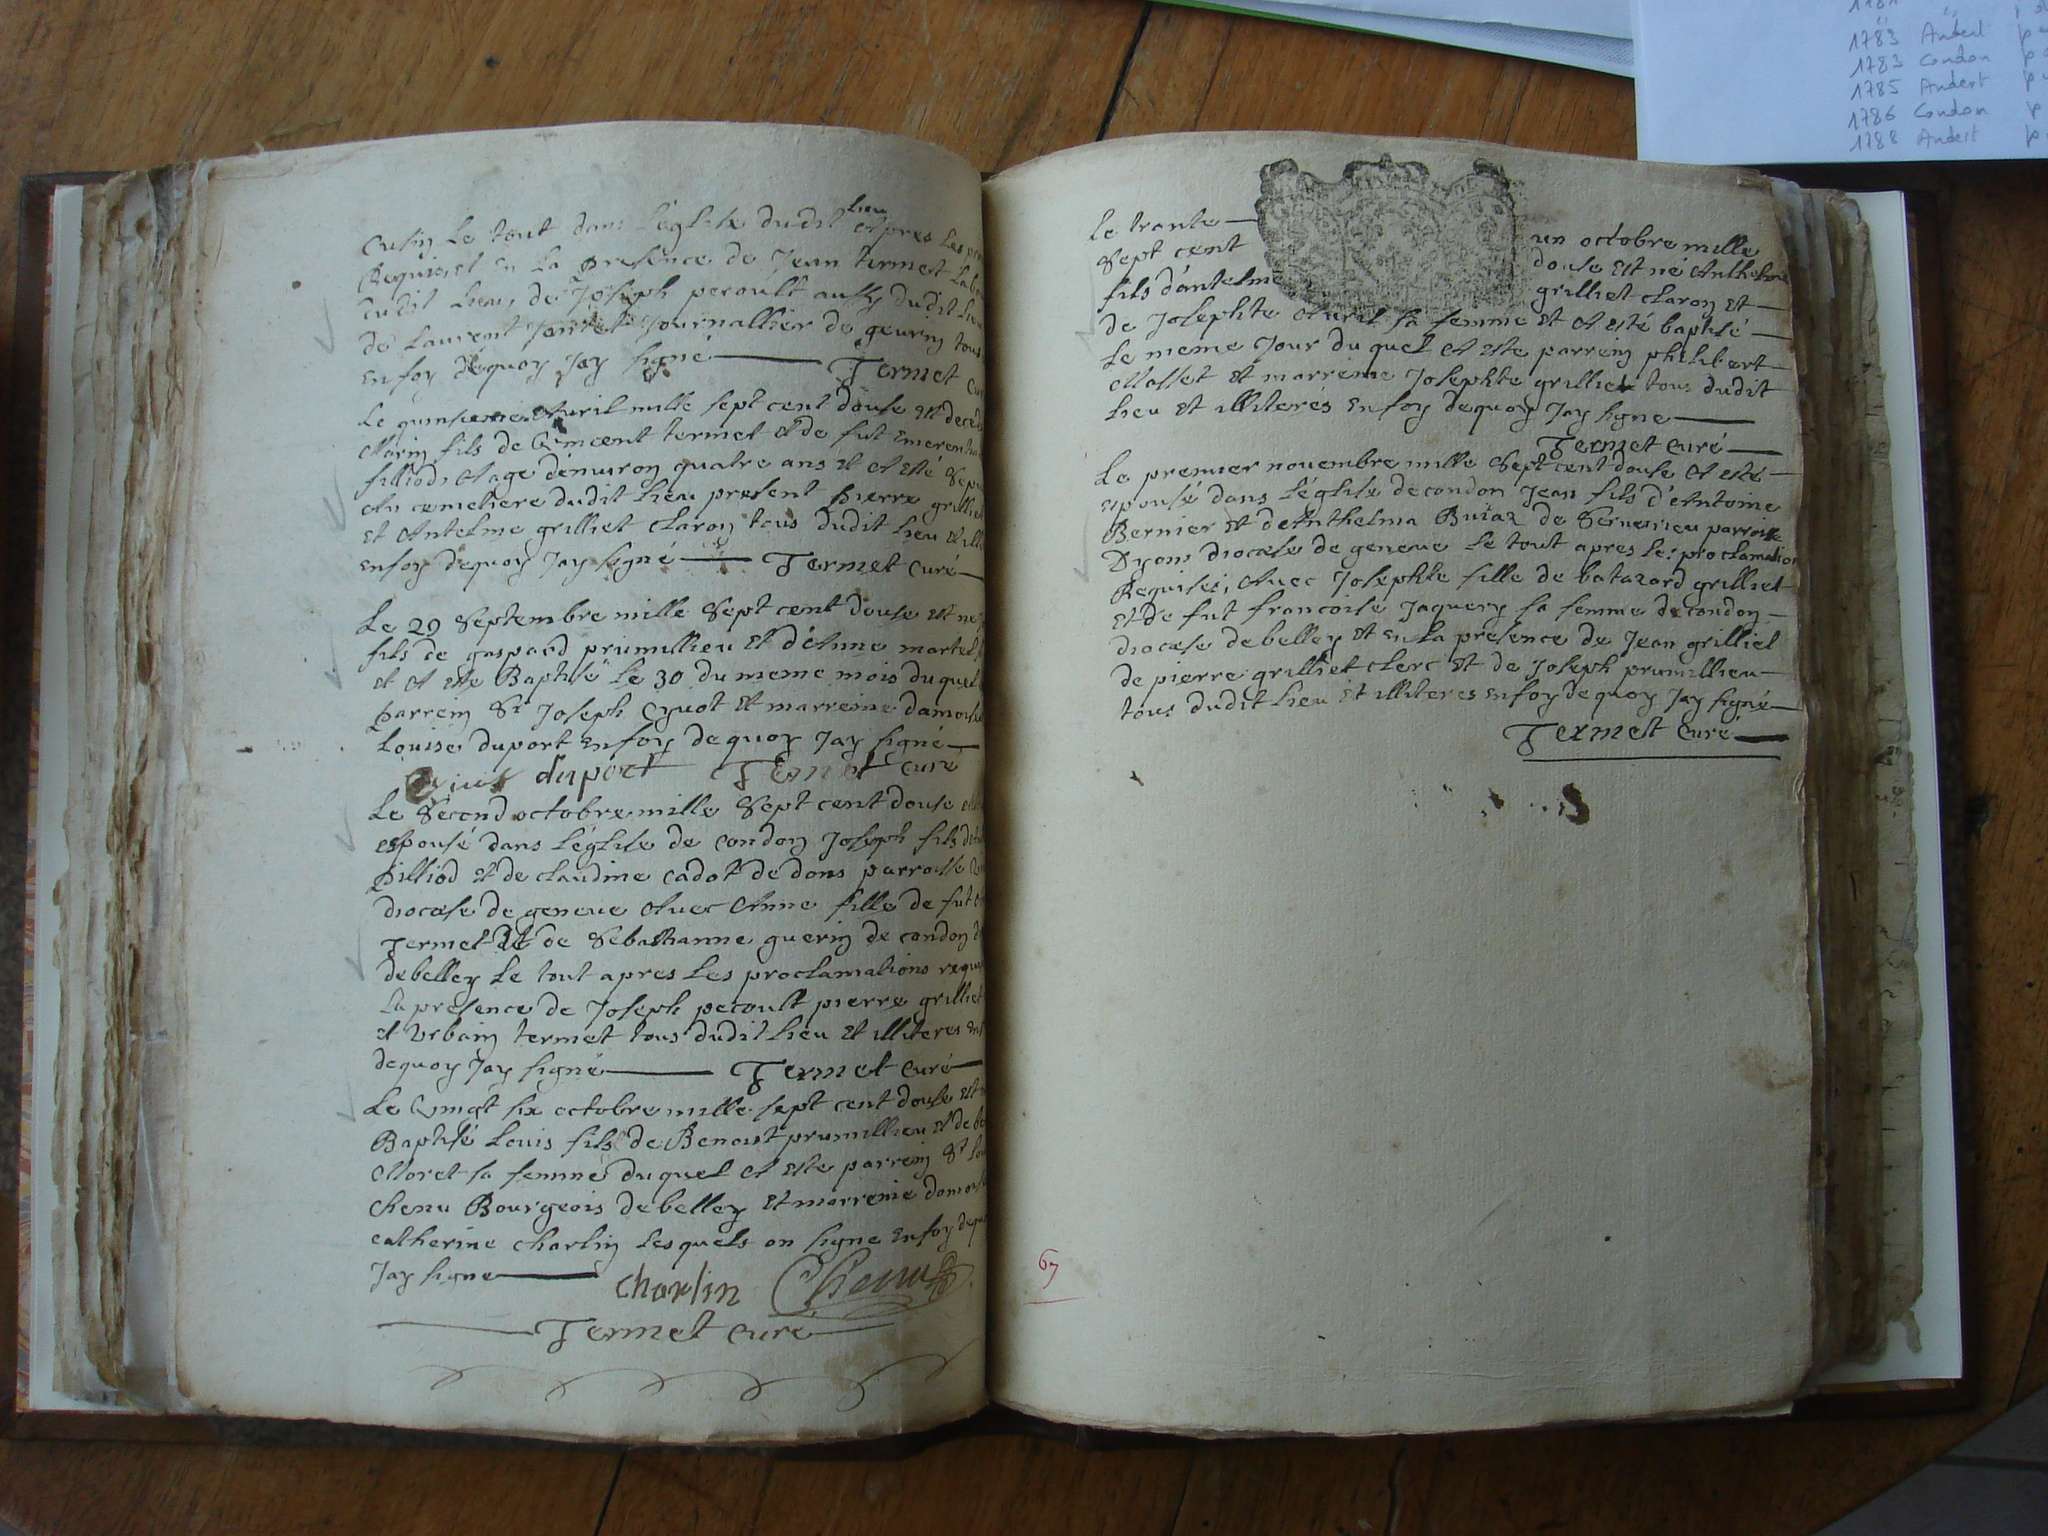 1781
1783 Andert p
1783 Condon p
1785 Andert p
1786 Condon p
1788 Andert p
Cusin Le tout dans L'église dudit Lieu apres Les
Requises et En La presence de Jean termet
dudit Lieu, de Joseph peroult aussy dudit Lieu
de Laurent Journallier de geurin tous
En foy dequoy Jay signé Termet
Le quinsieme Avril mille sept cent douse Et decede
Marin fils de Vincent termet et de fut
filliod, Agé denuiron quatre ans Et A Esté
Au cemetiere dudit Lieu present pierre grilliet
Et Antelme grilliet claron tous dudit Lieu et
En foy dequoy Jay signé Termet curé
Le 29 Septembre mille Sept cent douse Est né
fils de gaspard prumillieu Et d'Anne martel
et A Este Baptisé Le 30 du meme mois duquel
parrein Sr Joseph Cyuot Et marreine
Louise duport En foy de quoy Jay signé
duport Termet curé
Le Second octobre mille Sept cent douse
espousé dans L'église de Condon Joseph fils
pilliod Et de claudine cadot de dons parroisse
diocæse de geneue Auec Anne fille de fut
Termet Et de Sebastianne guerin de condon
de belley Le tout apres Les proclamations
La presence de Joseph pecoult pierre grilliet
et Vrbain termet tous dudit Lieu Et illiteres
dequoy Jay signé Termet curé
Le Vingt six octobre mille sept cent douse Est
Baptisé Louis fils de Benoist prumillieu Et de
Moret sa femme duquel A Este parrein Sr
Chenu Bourgeois de belley Et marreine
catherine charlin Lesquels on signe En foy
Jay signe charlin Chenu
Termet curé
Le trante un octobre mille
Sept cent douse Est né Anthelme
fils d'antelme grilliet claron Et
de Josephte Auril sa femme Et A esté baptisé
Le meme Jour du quel A Este parrein philibert
Masset Et marreine Josephte grilliet tous dudit
Lieu Et illiteres En foy dequoy Jay signe
Termet curé
Le premier novembre mille Sept cent douse A Esté
espousé dans L'église de condon Jean fils d'Antoine
Bernier Et d'Anthelma Buiaz de parroisse
Dyons diocæse de geneue Le tout apres Les proclamations
Requises, Auec Josephte fille de batazard grilliet
Et de fut francoise Jaquery sa femme de condon
diocæse de belley Et En La presence de Jean grilliet
de pierre grilliet clerc Et de Joseph prumillieu
tous dudit Lieu Et illiteres En foy de quoy Jay signé
Termet Curé
67